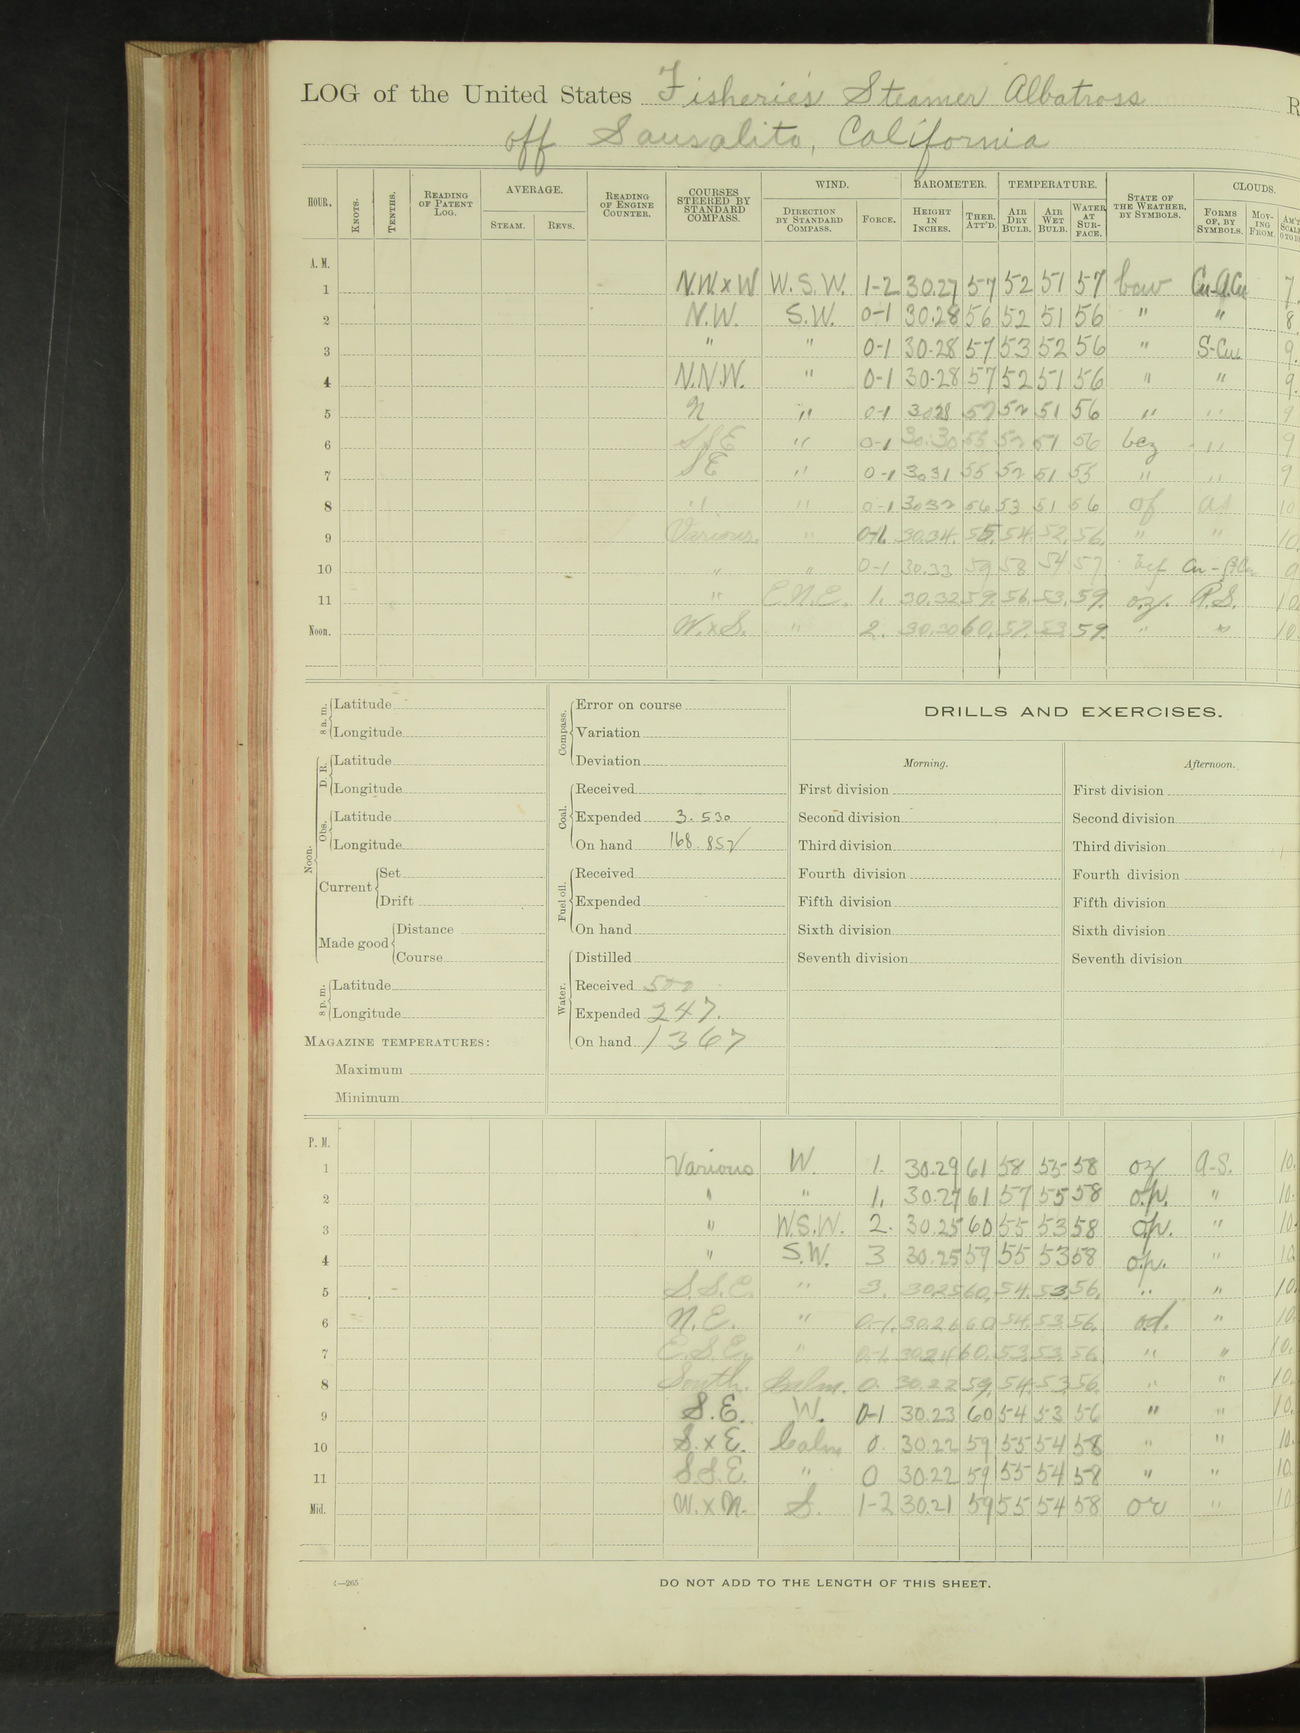 LOG of the United States Fisheries Steamer Albatross R
off Sausalito, California
HOUR. KNOTS. TENTHS. READING OF PATENT LOG. AVERAGE. STEAM. REVS. READING OF ENGINE COUNTER. COURSES STEERED BY STANDARD COMPASS. WIND. DIRECTION BY STANDARD COMPASS. FORCE. BAROMETER. HEIGHT IN INCHES. THER. ATT'D. TEMPERATURE. AIR DRY BULB. AIR WET BULB. WATER AT SURFACE. STATE OF THE WEATHER, BY SYMBOLS. CLOUDS. FORMS OF, BY SYMBOLS. MOVING FROM.
A. M.
1 N.W.xW W.S.W. 1-2 30.27 57 52 51 57 bcw Cu-A.Cu 7.
2 N.W. S.W. 0-1 30.28 56 52 51 56 " " 8.
3 " " 0-1 30.28 57 53 52 56 " S-Cu. 9.
4 N.N.W. " 0-1 30.28 57 52 51 56 " " 9.
5 N " 0-1 3028 57 52 51 56 " " 9
6 S.S.E " 0-1 30.30 55 52 51 56 bcz " 9
7 SE " 0-1 3031 55 52 51 55 " " 9
8 " " 0-1 3032 56 53 51 56 of as 10
9 Various. " 0-1. 30.34. 55. 54. 52. 56. " " 10.
10 " " 0-1 30.33 59 58 54 57 bcf 9
11 " E.N.E. 1. 30.32 59. 56. 53. 59. oz. A.S. 10.
Noon. W.xS. " 2. 30.30 60. 57. 53. 59. " " 10.
8 a. m. Latitude
Longitude
Noon. D. R. Latitude
Longitude
Obs. Latitude
Longitude
Current Set
Drift
Made good Distance
Course
8 p. m. Latitude
Longitude
MAGAZINE TEMPERATURES:
Maximum
Minimum
Compass. Error on course
Variation
Deviation
Coal. Received
Expended 3. 530
On hand 168. 852
Fuel oil. Received
Expended
On hand
Water. Distilled
Received 500
Expended 247.
On hand 1367
DRILLS AND EXERCISES.
Morning. Afternoon.
First division First division
Second division Second division
Third division Third division
Fourth division Fourth division
Fifth division Fifth division
Sixth division Sixth division
Seventh division Seventh division
P. M.
1 Various W. 1. 30.29 61 58 55 58 oz A-S. 10.
2 " " 1. 30.27 61 57 55 58 o.p. " 10.
3 " W.S.W. 2. 30.25 60 55 53 58 o.p. " 10.
4 " S.W. 3 30.25 59 55 53 58 o.p. " 10.
5 S.S.E. " 3. 30.25 60. 54. 53. 56. " " 10.
6 N.E. " 0-1. 30.26 60 54. 53. 56. o.d. " 10.
7 E.S.E. " 0-1. 30.24 60. 53. 53. 56. " " 10.
8 South. Calm. 0 30.22 59. 54. 53. 56. " " 10.
9 S.E. W. 0-1 30.23 60 54 53 56 " " 10.
10 S.xE. Calm 0. 30.22 59 55 54 58 " " 10.
11 S.S.E. " 0 30.22 59 55 54 58 " " 10.
Mid. W.xN. S. 1-2 30.21 59 55 54 58 or " 10.
4—265
DO NOT ADD TO THE LENGTH OF THIS SHEET.